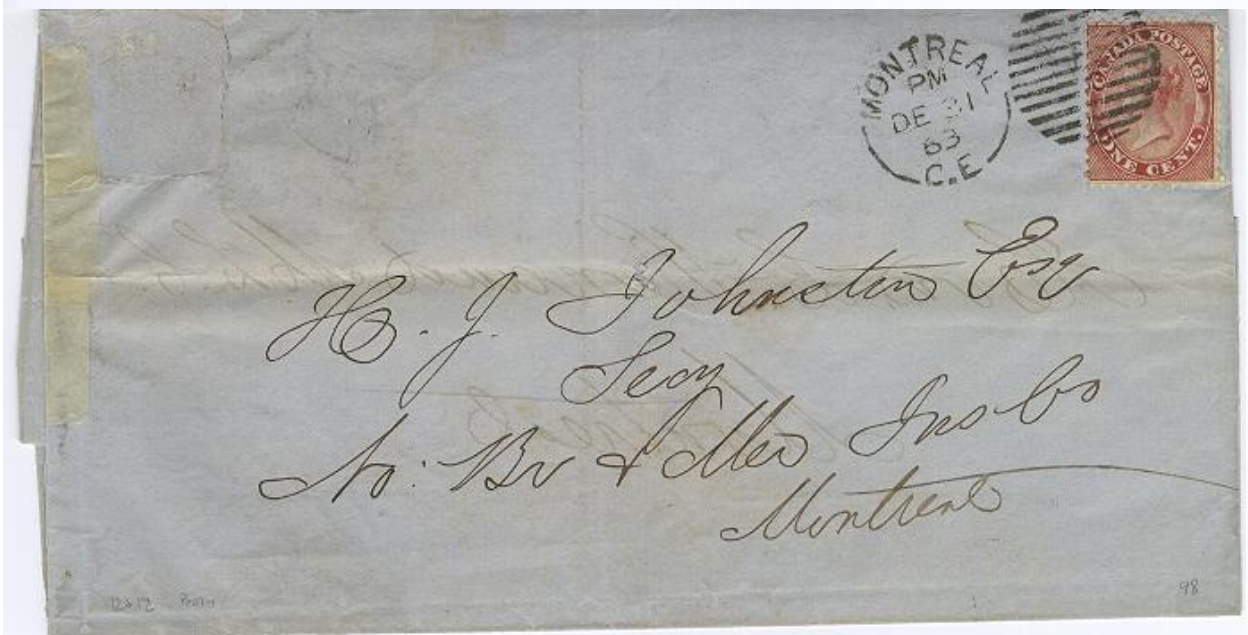 MONTREAL
PM
DE 21
63
C.E
CANADA POSTAGE
ONE CENT.
H. J. Johnston Esq
Secy
No: Br & Mer Ins Co
Montreal
98